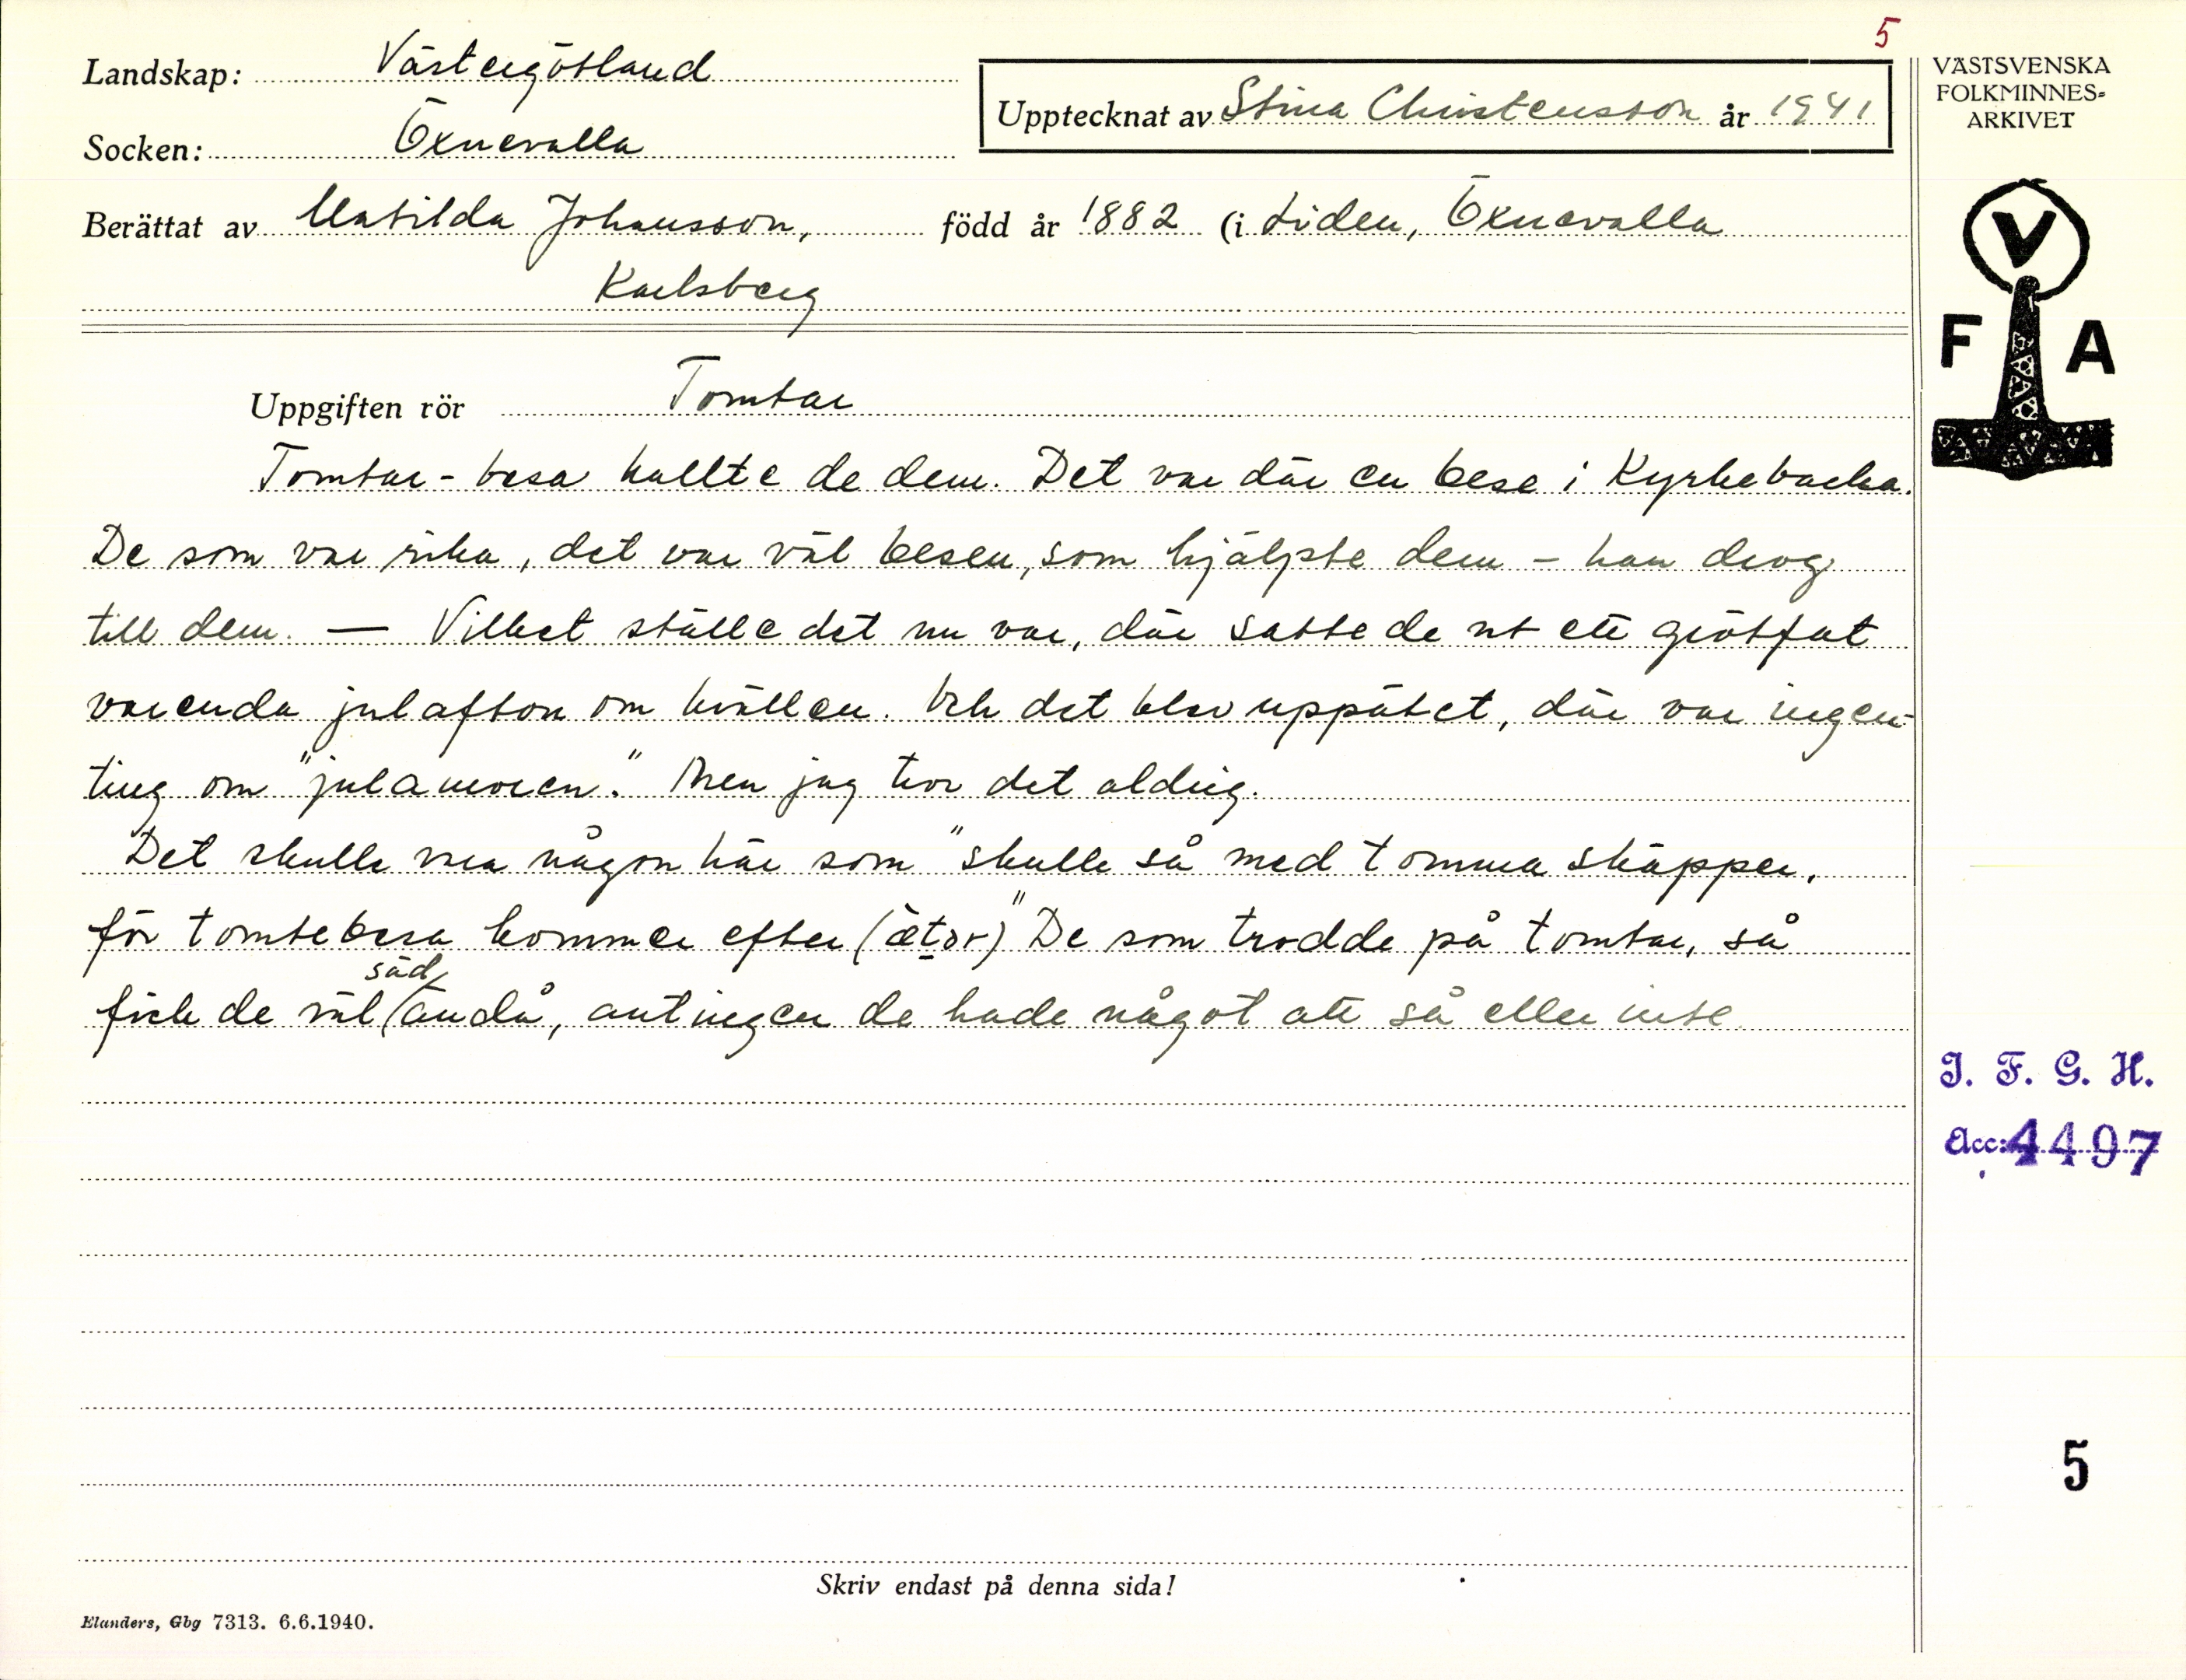 5
Landskap: Västergötland
Socken: Öxnevalla
Upptecknat av Stina Christensson år 1941
VÄSTSVENSKA
FOLKMINNES=
ARKIVET
Berättat av Matilda Johansson, född år 1882 (i Liden, Öxnevalla
Karlsberg
V
F A
Uppgiften rör Tomtar
Tomtar - besa kallte de dem. Det var där en bese i Kyrkebacka.
De som var rika, det var väl besen, som hjälpte dem - han drog
till dem. — Vilket ställe det nu var, där satte de ut ett grötfat
varenda julafton om kvällen. Och det blev uppätet, där var ingen-
ting om "julamoren." Men jag tror det aldrig.
Det skulle vara någon här som "skulle så med tomma skäpper,
för tomtebesa kommer efter (ätər)" De som trodde på tomtar, så
fick de väl säd ändå, antingen de hade något att så eller inte.
I. F. G. H.
Acc: 4497
5
Skriv endast på denna sida!
Elanders, Gbg 7313. 6.6.1940.